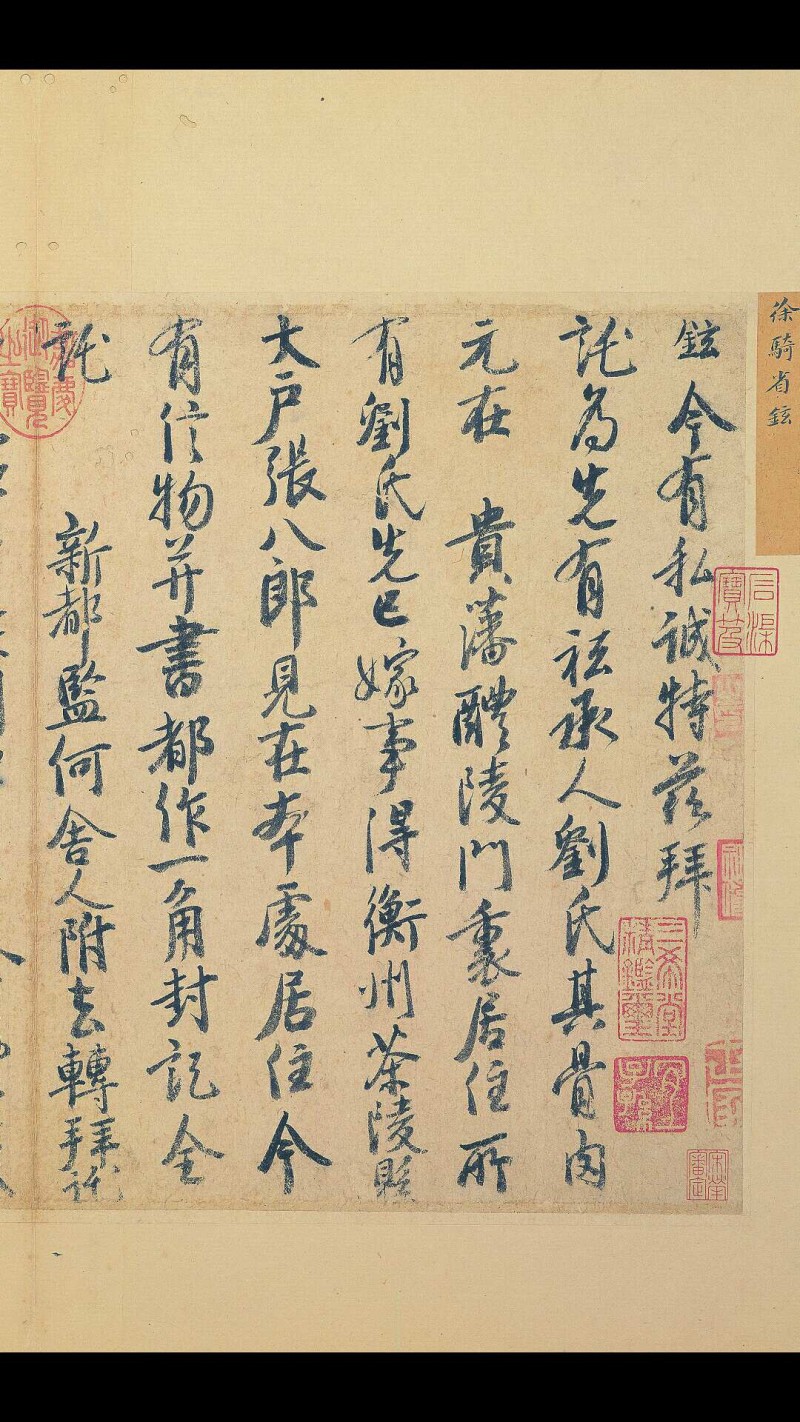 徐騎省鉉
鉉今有私誠特茲拜
託為先有祗承人劉氏其骨肉
元在　貴藩醴陵門裏居住所
有劉氏先已嫁事得衡州茶陵縣
大戶張八郎見在本處居住今
有信物并書都作一角封記全
託
新都監何舍人附去轉拜託
三希堂精鑑璽
宜子孫
嘉慶御覽之寶